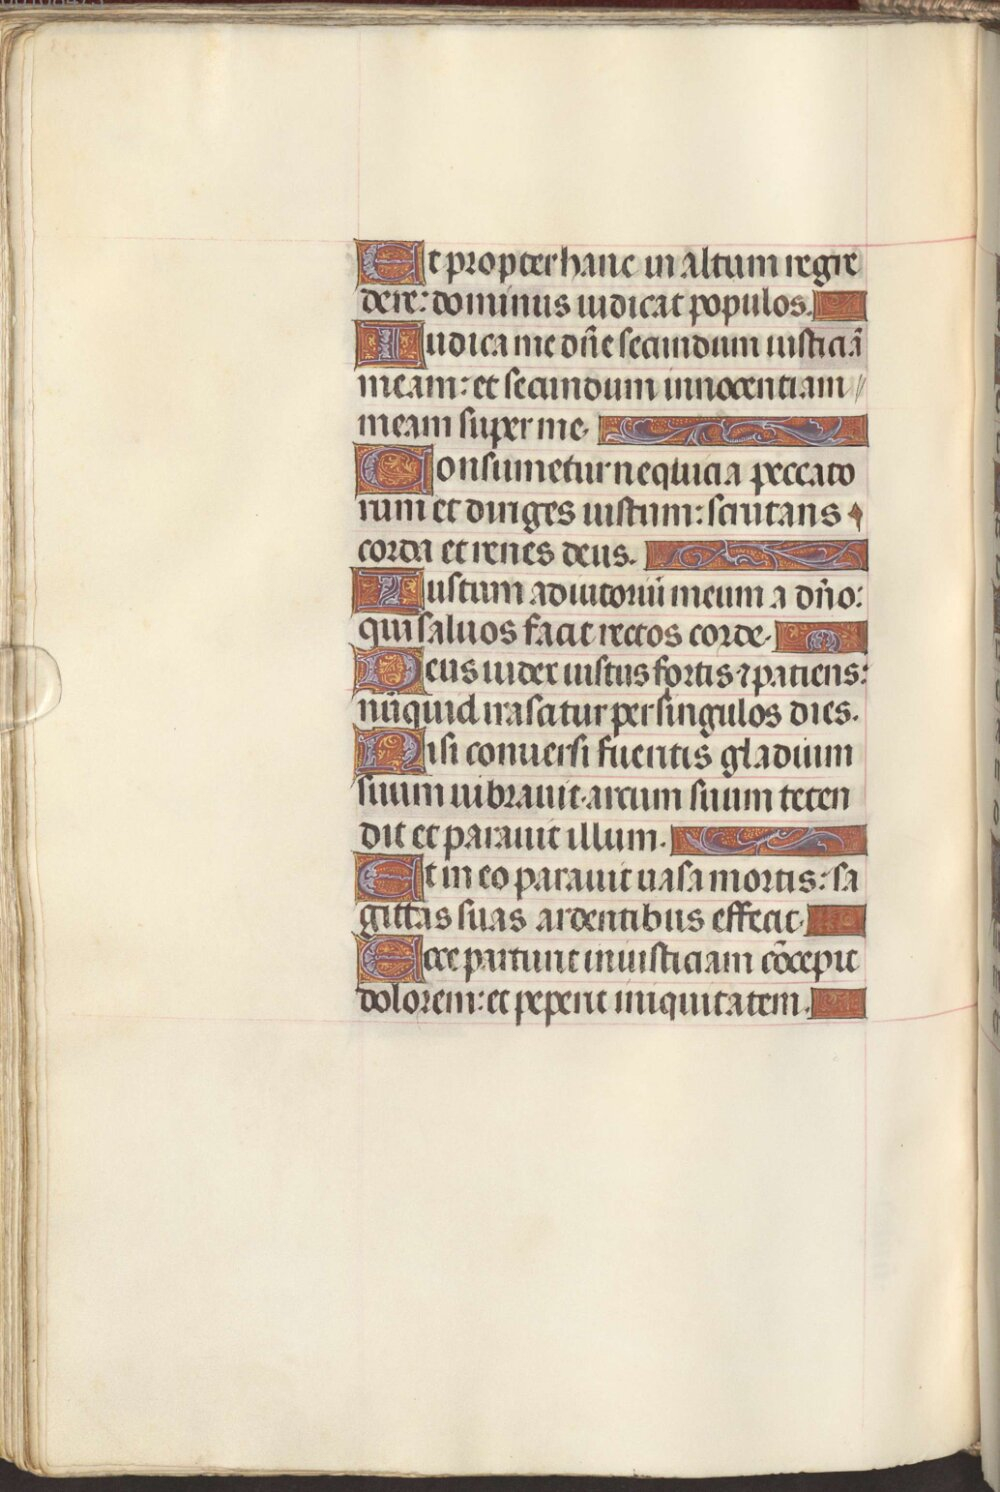 Et propter hanc in altum regre
dere: dominus iudicat populos.
Iudica me dñe secundum iusticiā
meam: et secundum innocentiam
meam super me.
Consumetur nequicia peccato
rum et diriges iustum: scrutans
corda et renes deus.
Iustum adiutoriū meum a dño:
qui saluos facit rectos corde.
Deus iudex iustus fortis ⁊ patiens:
nūquid irascitur per singulos dies.
Nisi conuersi fueritis gladium
suum uibrauit. arcum suum teten
dit et parauit illum.
Et in eo parauit uasa mortis: sa
gittas suas ardentibus effecit.
Ecce parturit iniusticiam cōcepit
dolorem: et peperit iniquitatem.